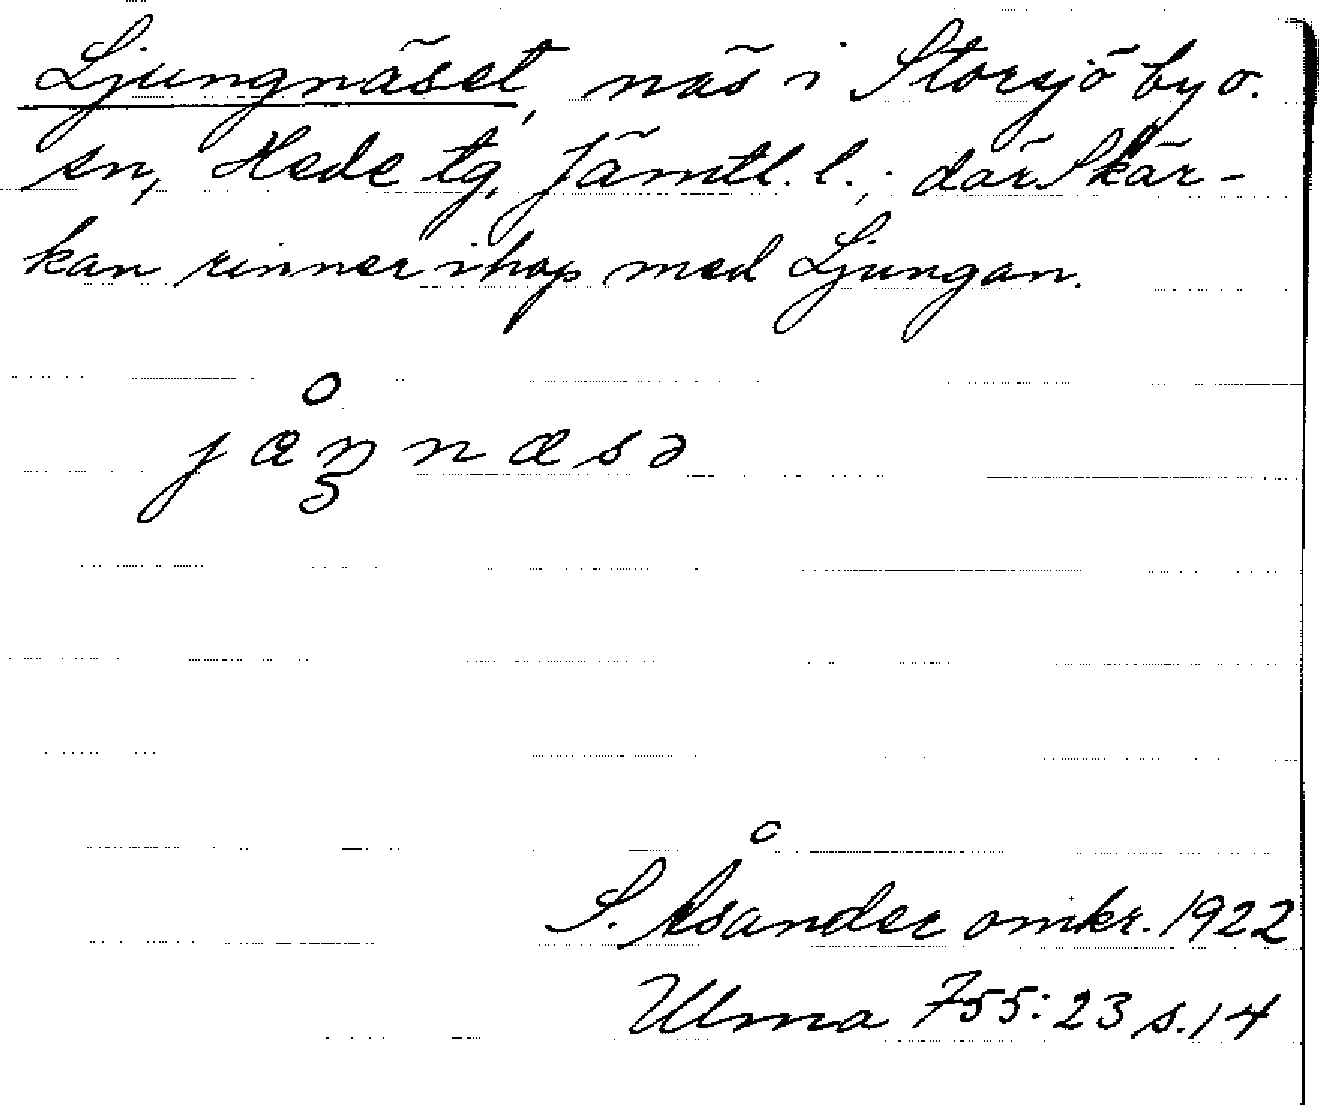 Ljungnäset, näs i Storsjö by o.
sn, Hede tg, Jämtl. l.; där Skär-
kan rinner ihop med Ljungan.
S. Åsander omkr. 1922
Ulma 755:23 s. 14